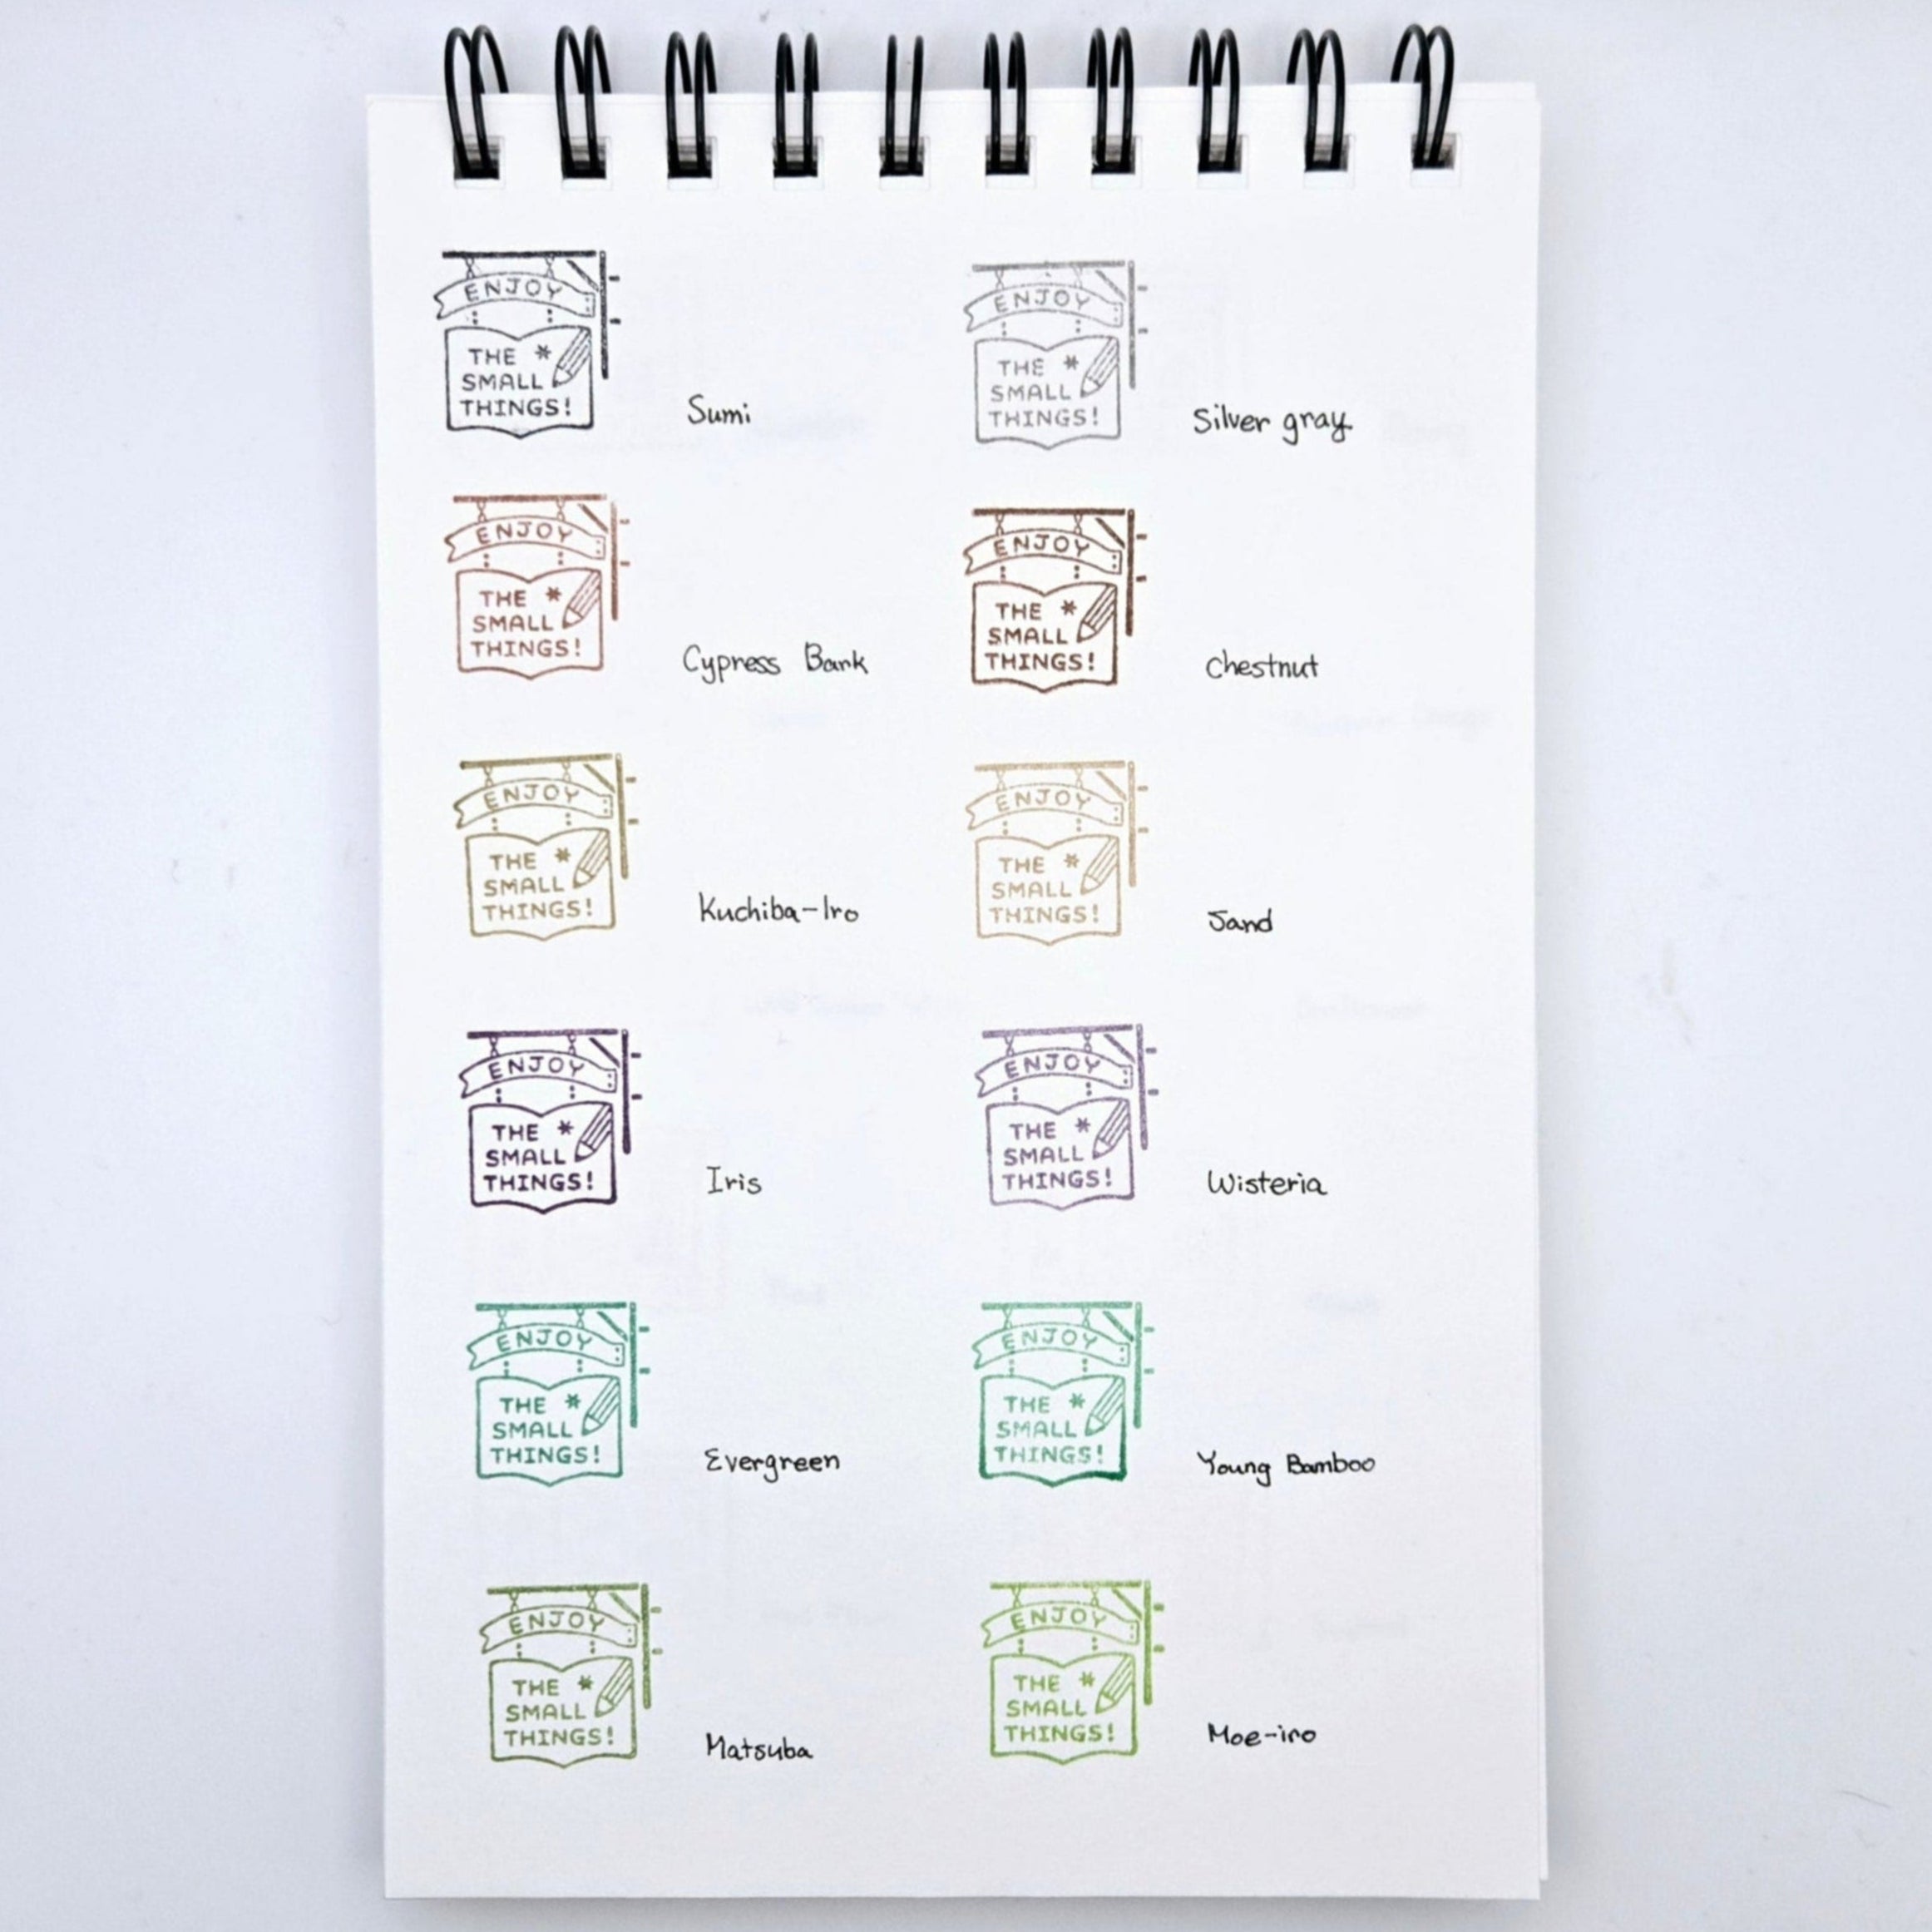 ENJOY
THE
SMALL
THINGS!
Sumi
ENJOY
THE
SMALL
THINGS!
Silver gray
ENJOY
THE
SMALL
THINGS!
Cypress Bark
ENJOY
THE
SMALL
THINGS!
Chestnut
ENJOY
THE
SMALL
THINGS!
Kuchiba-Iro
ENJOY
THE
SMALL
THINGS!
Sand
ENJOY
THE
SMALL
THINGS!
Iris
ENJOY
THE
SMALL
THINGS!
Wisteria
ENJOY
THE
SMALL
THINGS!
Evergreen
ENJOY
THE
SMALL
THINGS!
Young Bamboo
ENJOY
THE
SMALL
THINGS!
Matsuba
ENJOY
THE
SMALL
THINGS!
Moe-iro